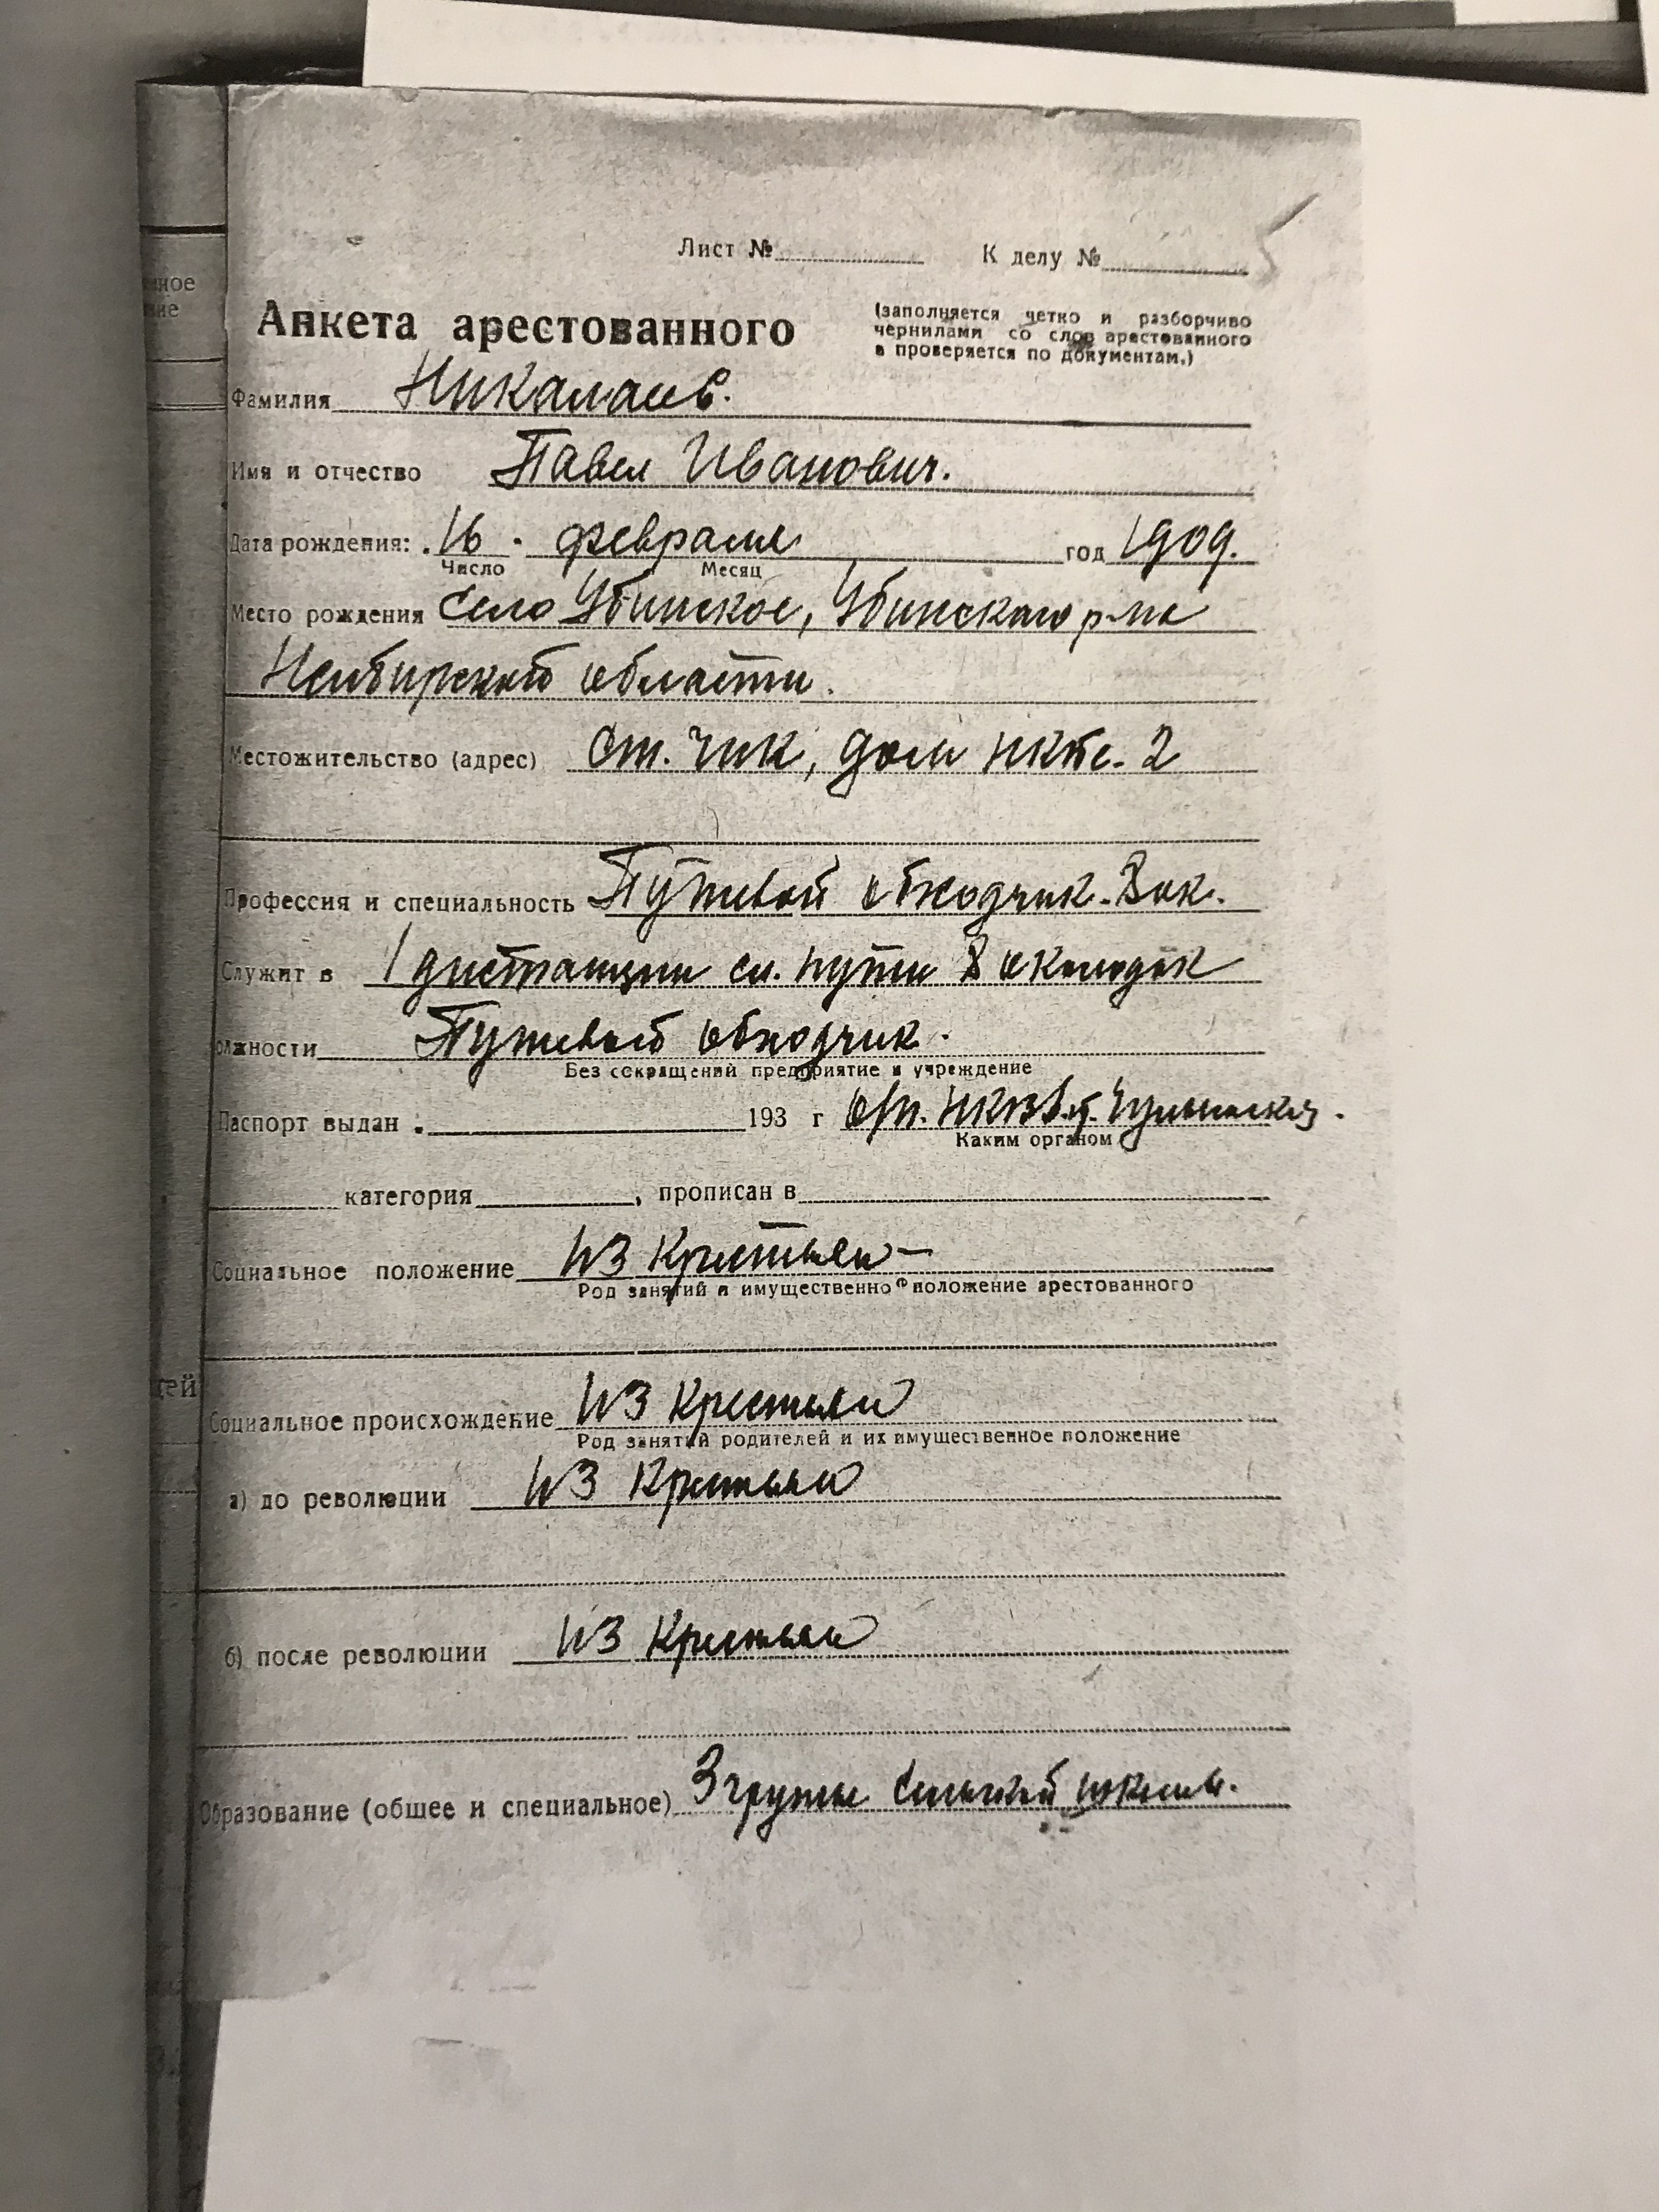 нное
ние
5
Лист № К делу №
Анкета арестованного
(заполняется четко и разборчиво
чернилами со слов арестованного
и проверяется по документам.)
Фамилия Никалаев.
Имя и отчество Павел Иванович.
Дата рождения: 16 февраля год 1909.
Число Месяц
Место рождения Село Убинское, Убинского р-на
Нсибирской области.
Местожительство (адрес) Ст. Чик, дом НКПС-2
Профессия и специальность Путевой обходчик
Служит в 1 дистанции сл. пути 8 околодок
олжности Путевой обходчик.
Без сокращений предприятие и учреждение
Паспорт выдан 193 г
Каким органом
категория , прописан в
Социальное положение из Крестьян
Род занятий и имущественное положение арестованного
тей
Социальное происхождение из Крестьян
Род занятий родителей и их имущественное положение
а) до революции из Крестьян
б) после революции из Крестьян
Образование (общее и специальное) 3 групы сельской школы.